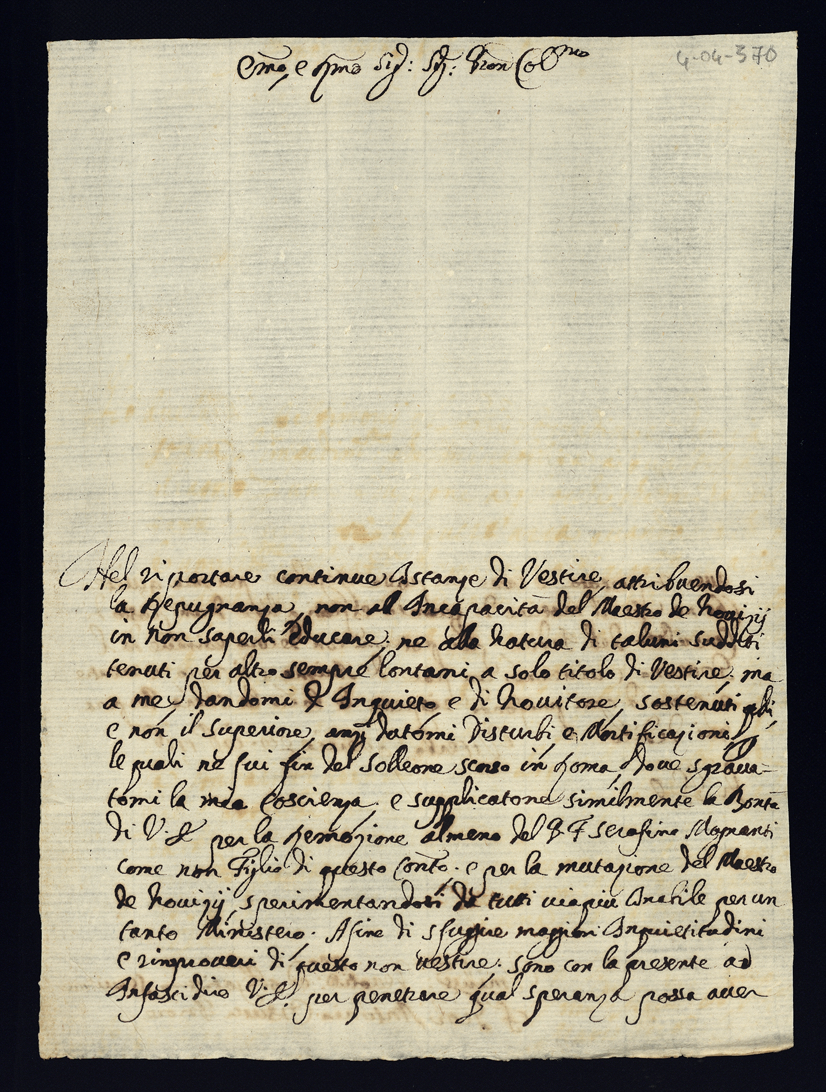 4-04-370
e Sig: Sig: Pron Col^mo
Nel riportare continue Istanze di Vestire, attribuendosi
la Repugnanza, non al Incapacità del Maestro de Novizij
in non saperli educare, ne alla natura di taluni sudditi
tenuti per altro sempre lontani a solo titolo di Vestire; ma
a me, dandomi d'Inquieto e di Novitore, sostenuti
e non il Superiore, anzi datomi Disturbi e Mortificazioni
le quali ne fui fin del solleone scorso in Roma, dove sgrava=
tomi la mia Coscienza, e supplicatone similmente la Bontà
di V. S. per la Remozione almeno del P. F. Serafino Magnanti
come non Figlio di questo Con^to. e per la mutazione del Maestro
de Novizij, sperimentandosi da tutti viapiù Inabile per un
tanto Ministero. Afine di sfugire maggiori Inquietitudini
e rimproveri di questo non vestire; sono con la presente ad
Infastidire V. S. per penetrare qual speranza possa aver